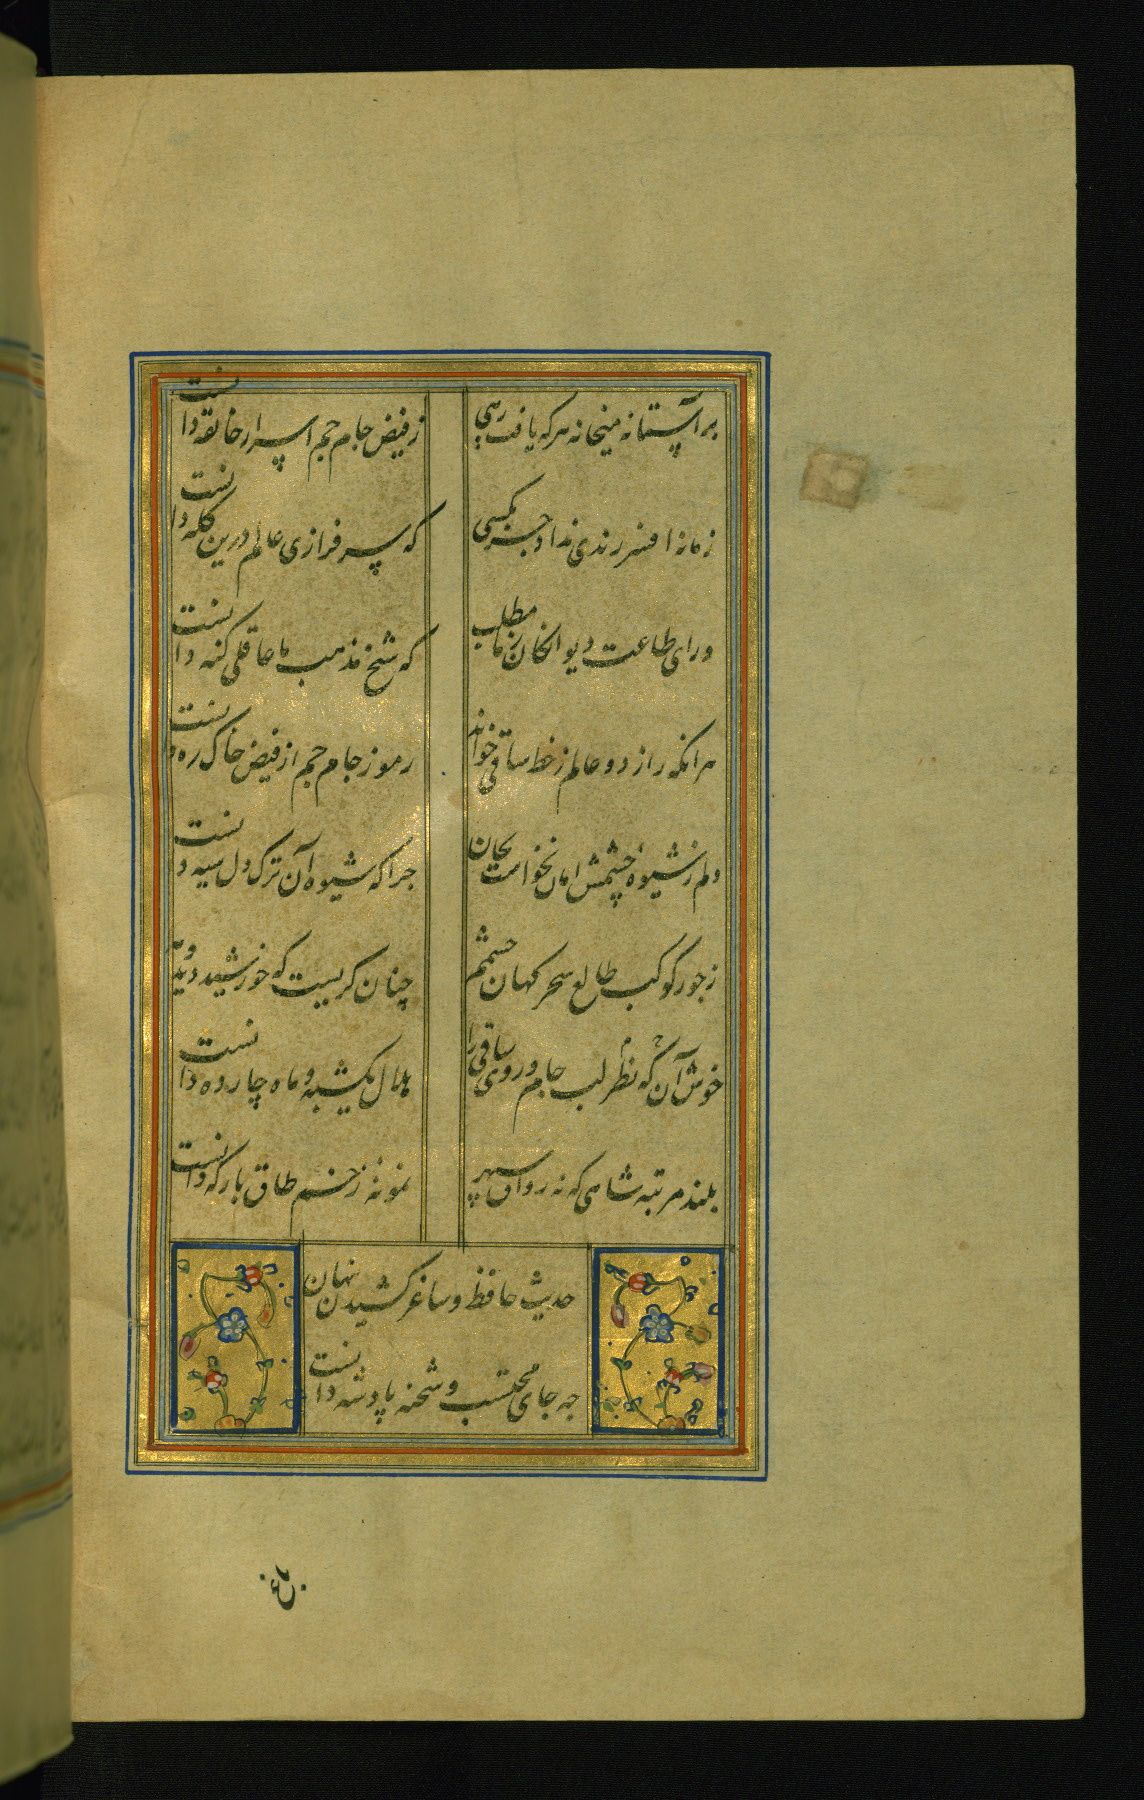 بر آستانه میخانه هر که یافت رهی
ز فیض جام جم اسرار خانقه دانست
زمانه افسر رندی نداد جز بکسی
که سرفرازی عالم درین کله دانست
ورای طاعت دیوانکان ز ما مطلب
که شیخ مذهب ما عاقلی کنه دانست
هر انکه راز دو عالم ز خط ساقی خواند
رموز جام جم از فیض خاک ره دانست
دلم ز شیوه چشمش امان نخواست بجان
چرا که شیوه آن ترک دل سیه دانست
ز جور کوکب طالع سحرکهان چشمم
چنان کریست که خورشید دید و مه
خوش آن که نظر لب جام و روی ساقی را
هلال یکشبه و ماه چارده دانست
بلند مرتبه شاهی که نه رواق سپهر
نمونه ز خم طاق بارکه دانست
حدیث حافظ و ساغر کشیدن نهان
چه جای محتسب و شحنه پادشه دانست